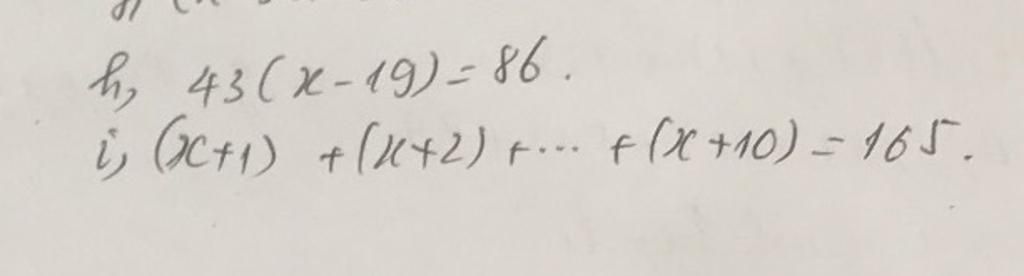 h, 43(x-19)=86.
i, (x+1) +(x+2) +... +(x+10)=165.